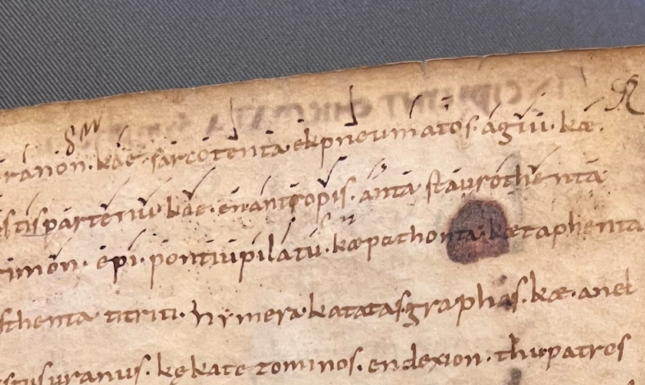 uranon. kae. sarcotenta ekpneumatos. agiu. kae.
partenu. kae. enantropis. anta staurothenta
rimon. epi. pontiupilatu. kaepathonta. kaetaphenta
sthenta titriti. hymera. katatasgraphas. kae. anel
uranus. kękate zominos. endexion. thupatros